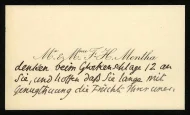 M. & Mme F. H. Mentha
denken beim Glockenschlage 12 an
Sie, und hoffen daß Sie lange mit
Genugthuung die Früchte Ihrer